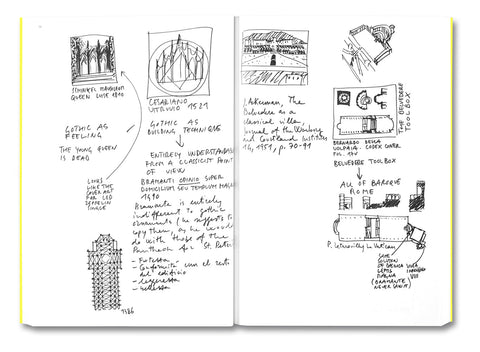 SCHINKEL MAUSOLEUM
QUEEN LUISE 1810
GOTHIC AS
FEELING
THE YOUNG QUEEN
IS DEAD
LOOKS
LIKE THE
COVER ART
FOR LED
ZEPPELIN
CESARIANO
VITRUVIO 1521
GOTHIC AS
BUILDING TECHNIQUE
ENTIRELY UNDERSTANDABLE
FROM A CLASSICIST POINT
OF VIEW
BRAMANTI OPINIO SUPER
DOMICILIUM SEU TEMPLUM MAGNUM
1490
Bramante is entirely
indifferent to gothic
ornaments (he suggests to
copy them, as he would
do with those of the
Pantheon for St. Peter)
- Fortezza
- Conformità con el resto
del edificio
- Legereza
- bellezza
1386
J. Ackerman, The
Belvedere as a
classical villa,
Journal of the Warburg
and Courtauld Institutes
14, 1951, p. 70-91
THE BELVEDERE
TOOLBOX
BERNARDO DELLA
VOLPAIA, CODEX CONER
FOL. 17V
BELVEDERE TOOLBOX
ALL OF BAROQUE
ROME
P. Letarouilly Le Vatican
SAME
(BRAMANTE
NEVER SAW IT)
INNOCENZO
VIII